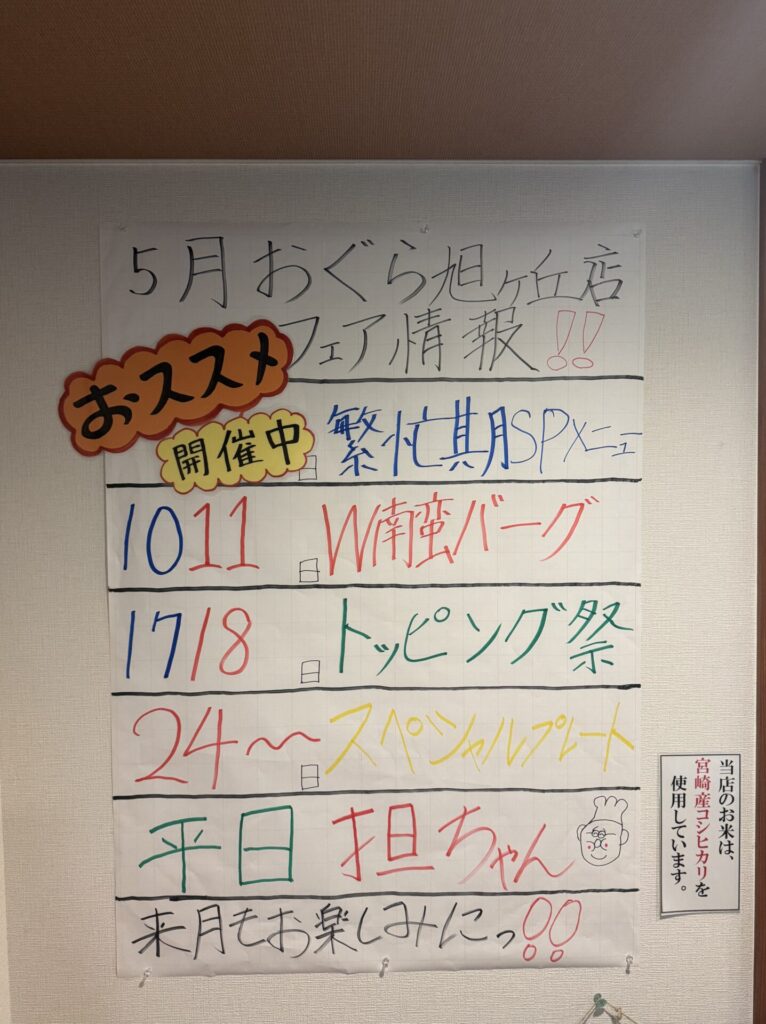 5月おぐら旭ヶ丘店
フェア情報!!
おススメ
開催中
日 繁忙期SPメニュー
10 11 日 W南蛮バーグ
17 18 日 トッピング祭
24〜〜日 スペシャルプレート
平日 担ちゃん
来月もお楽しみにっ!!
当店のお米は、
宮崎産コシヒカリを
使用しています。